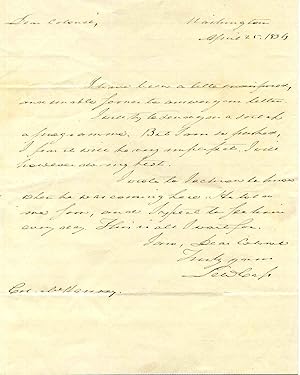 Dear Colonel, Washington
April 25. 1836
I have been a little
and unable sooner to answer your letter.
I will try to send you a sketch
a programme. But I am so pushed,
I fear it will be very imperfect. I will
however do my best.
I wrote to Jackson to know
when he was coming here. He told
me soon, and I expect to see him
every day. This is all I wait for.
I am, Dear Colonel
Truly yours
Lew Cass
Col. McKenney.